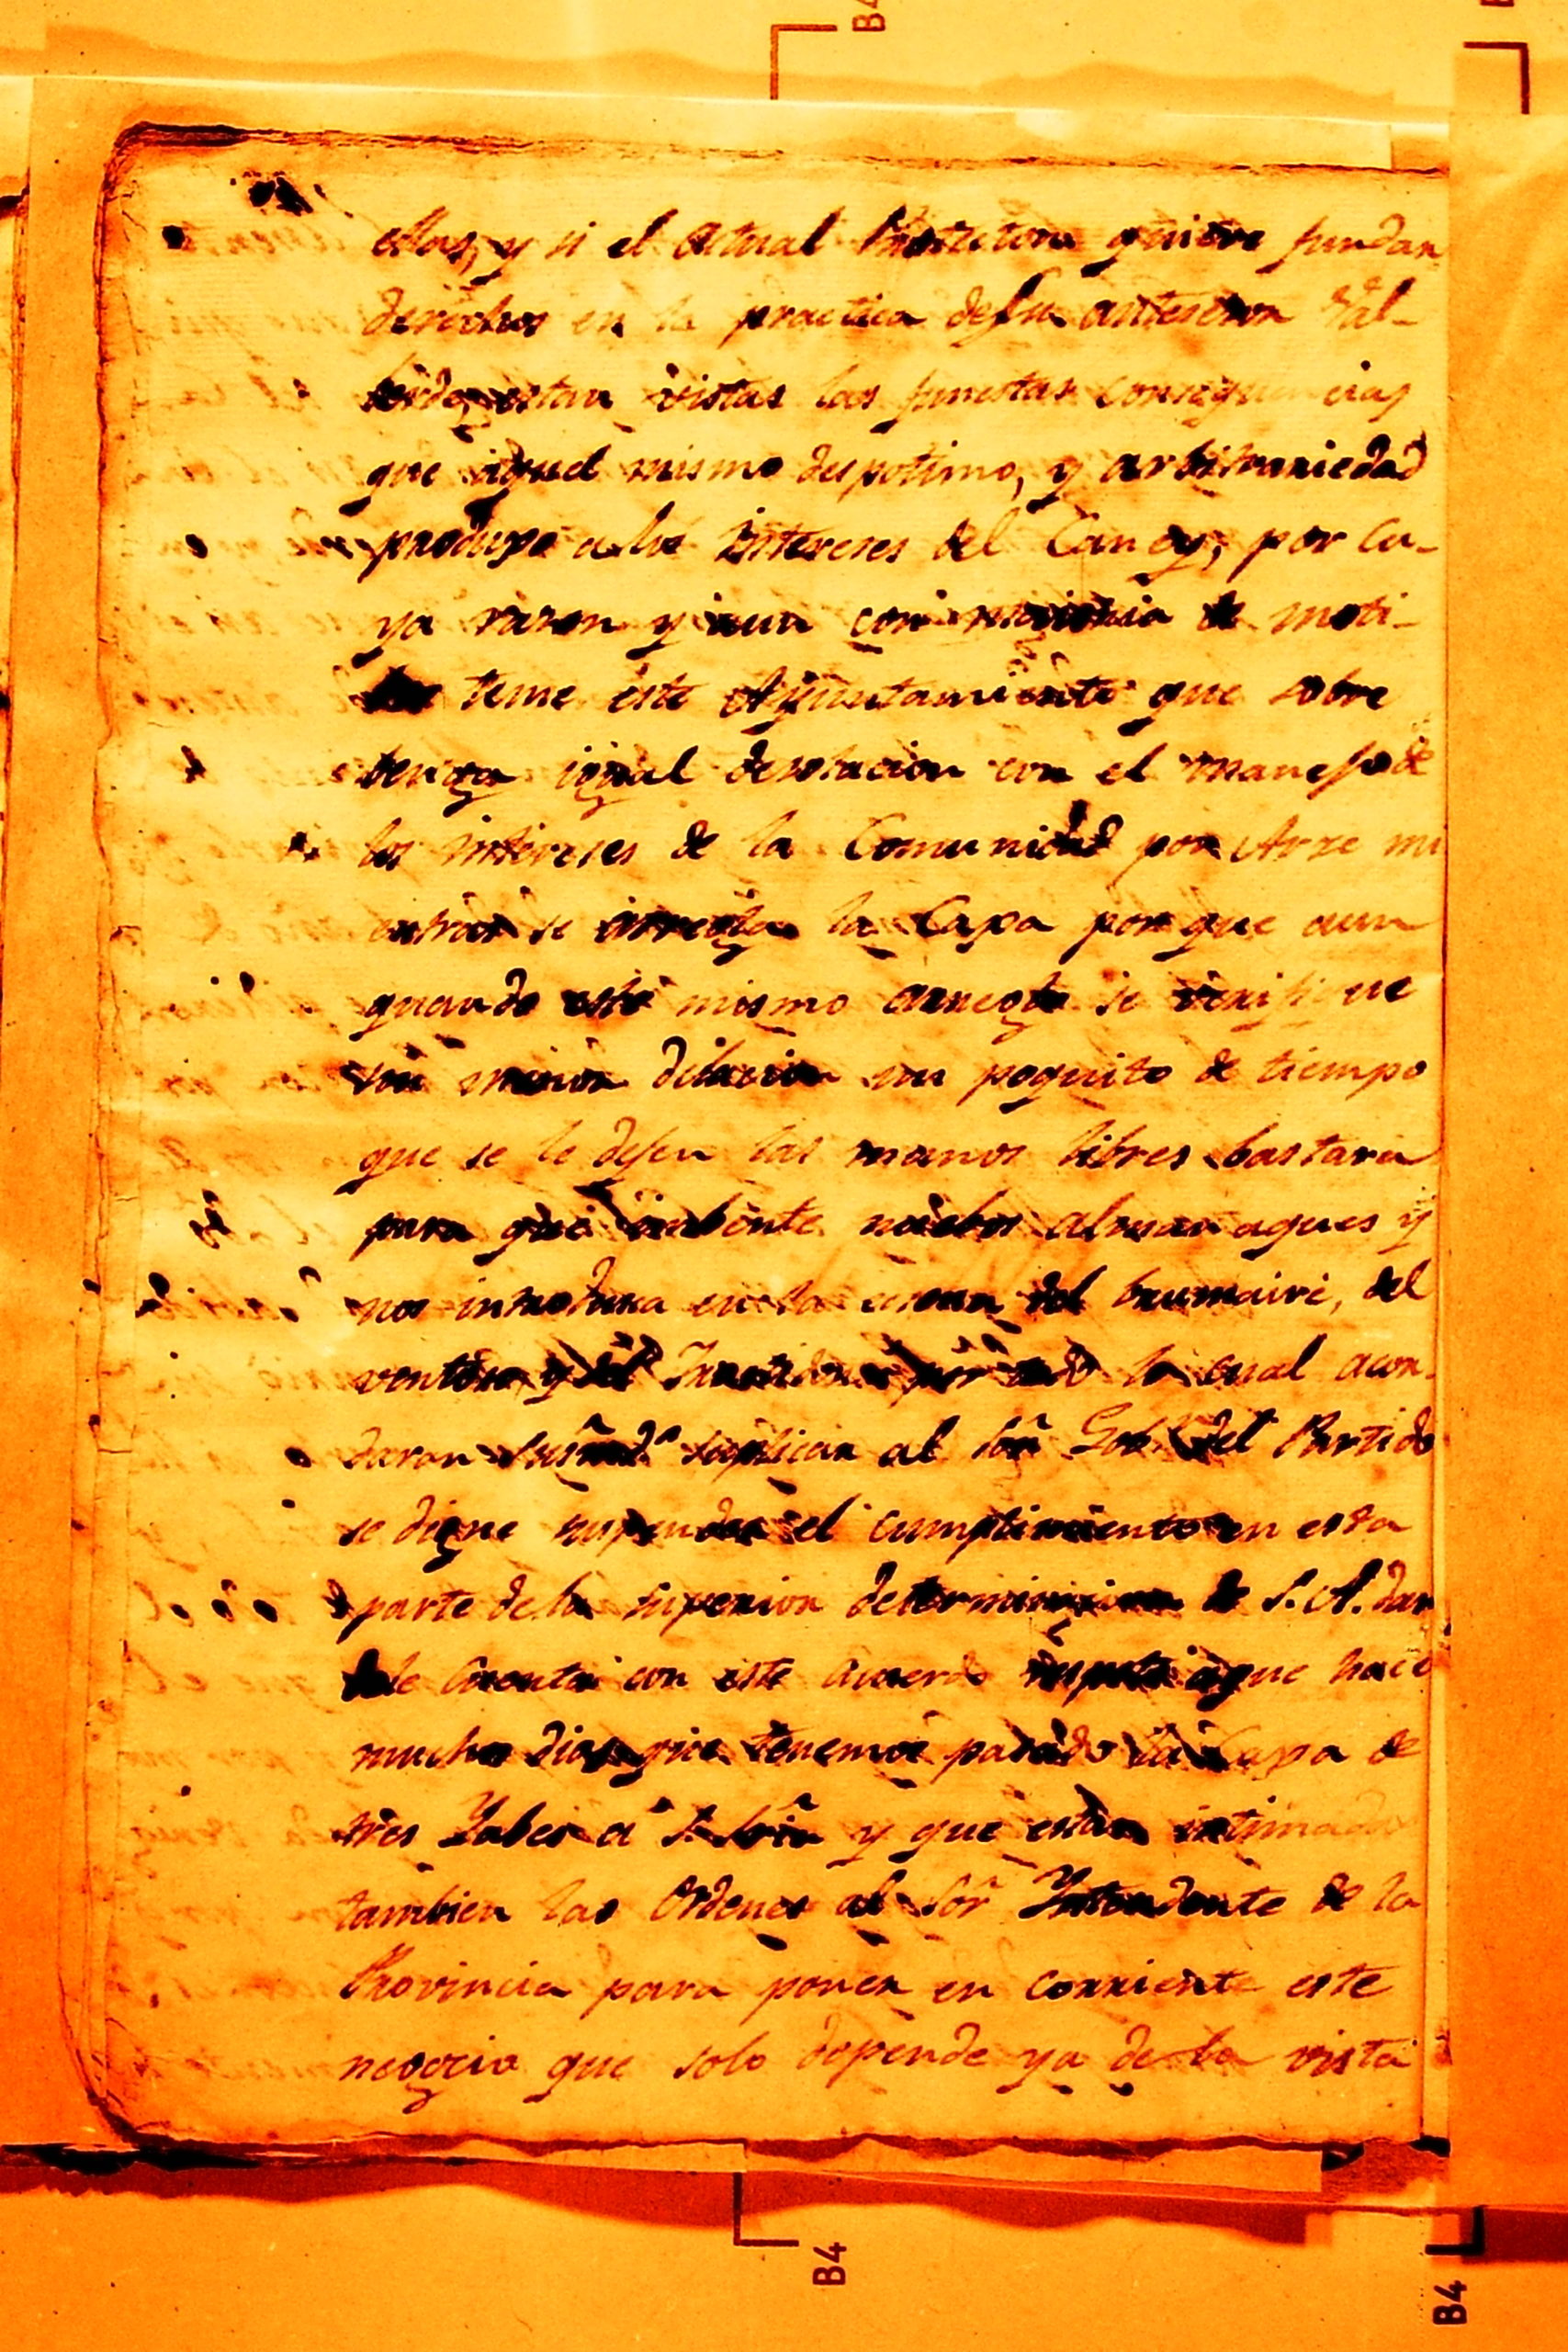 B4
ellas, y si el actual Protector quiere fundar
derechos en la practica de su antesesor Val-
berde, estan vistas las funestas consequencias
que aquel mismo despotimo, y arbitrariedad
produxo a los Intereses del Caney, por cu-
ya razon y aun con de moti-
teme este Ayuntamiento que sobre
benga igual desolacion con el manejo de
los intereses de la Comunidad por Arze mi
entras se arregla la Caxa por que aun
quando este mismo arreglo se verifique
sin menor dilacion un poquito de tiempo
que se le dejen las manos libres bastara
para que imbente nuebos almanaques y
nos introdusca en la escena del brumaire, del
ventoso, y del por todo lo cual acor-
daron suplicar al Sor̃ Gob.r del Partido
se digne suspender el cumplimiento en esta
parte de la superior determinacion de S. A. dan
dole Cuenta con este acuerdo respeto a que hace
muchos dias que tenemos la Caxa de
tres Llabes a y que estan intimadas
tambien las Ordenes al Sor̃ Yntendente de la
Provincia para poner en corriente este
negocio que solo depende ya de la vista
B4
B4